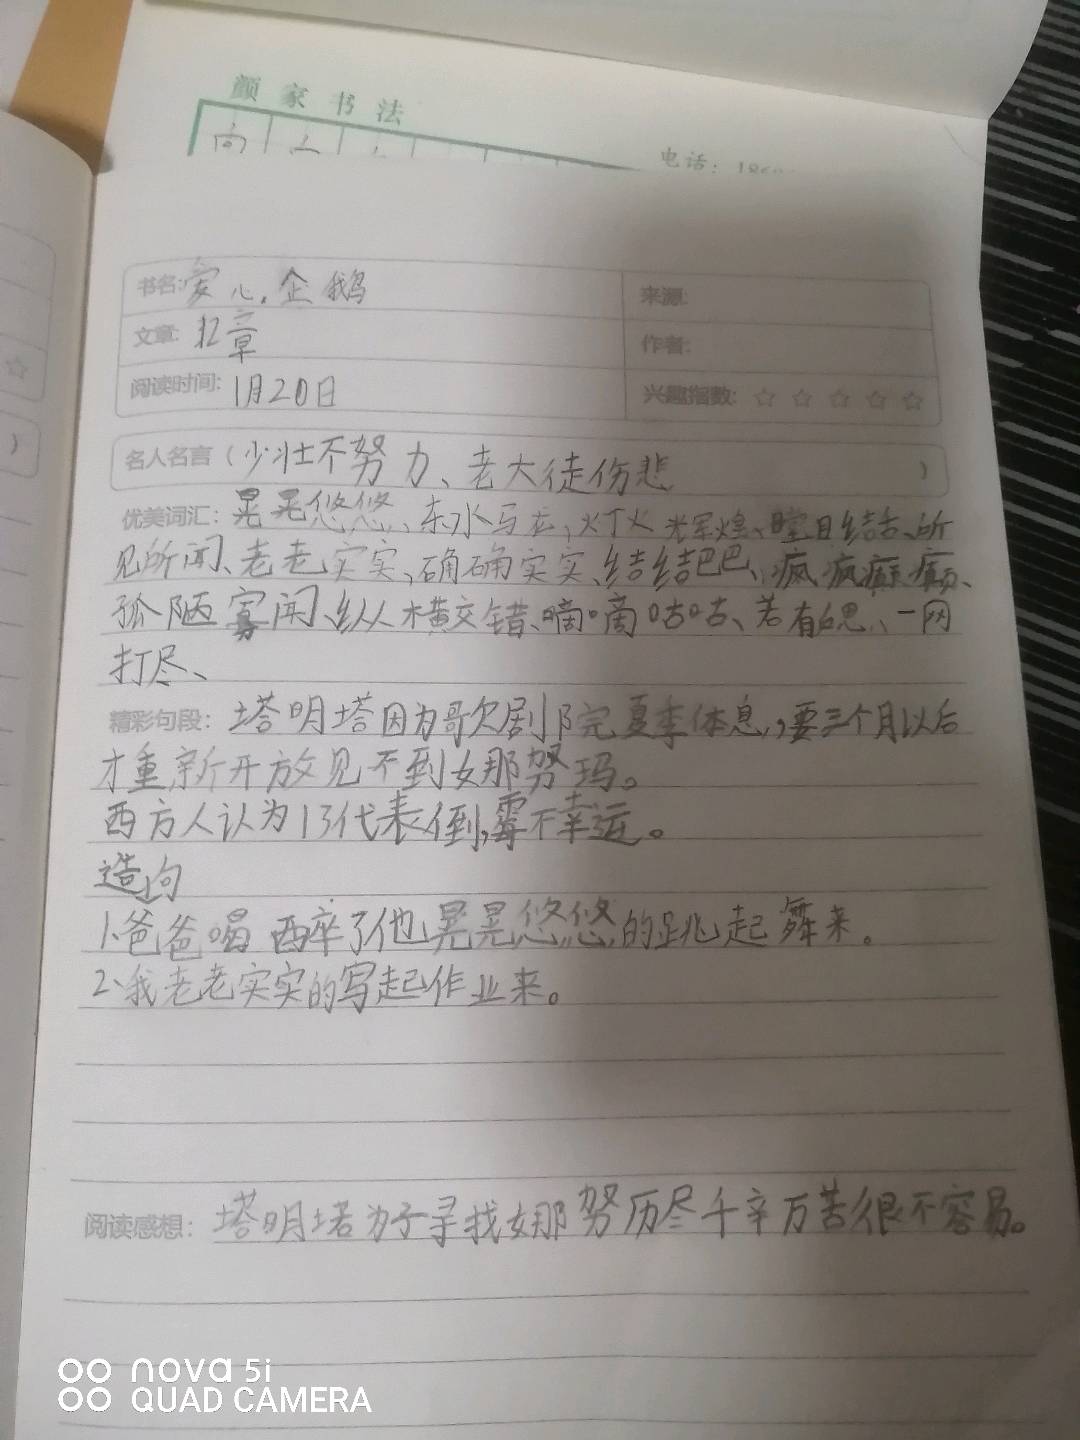 颜家书法
电话：
书名：爱心企鹅
来源：
文章：
作者：
阅读时间：1月20日
兴趣指数：☆☆☆☆☆
名人名言（少壮不努力、老大徒伤悲）
优美词汇：晃晃悠悠、车水马龙、灯火光军煌、瞠目结舌、所
见所闻、老老实实、确确实实、结结巴巴、疯疯癫癫、
孤陋寡闻、纵横交错、嘀嘀咕咕、若有所思、一网
打尽、
精彩句段：塔明塔因为歌欠剧院夏季体息，要三个月以后
才重新开放见不到女那努玛。
西方人认为13代表倒霉不幸运。
造句
1、爸爸喝醉了他晃晃悠悠的跳起舞来。
2、我老老实实的写起作业来。
阅读感想：塔明塔为了寻找女那努历尽千辛万苦很不容易。
nova 5i
QUAD CAMERA